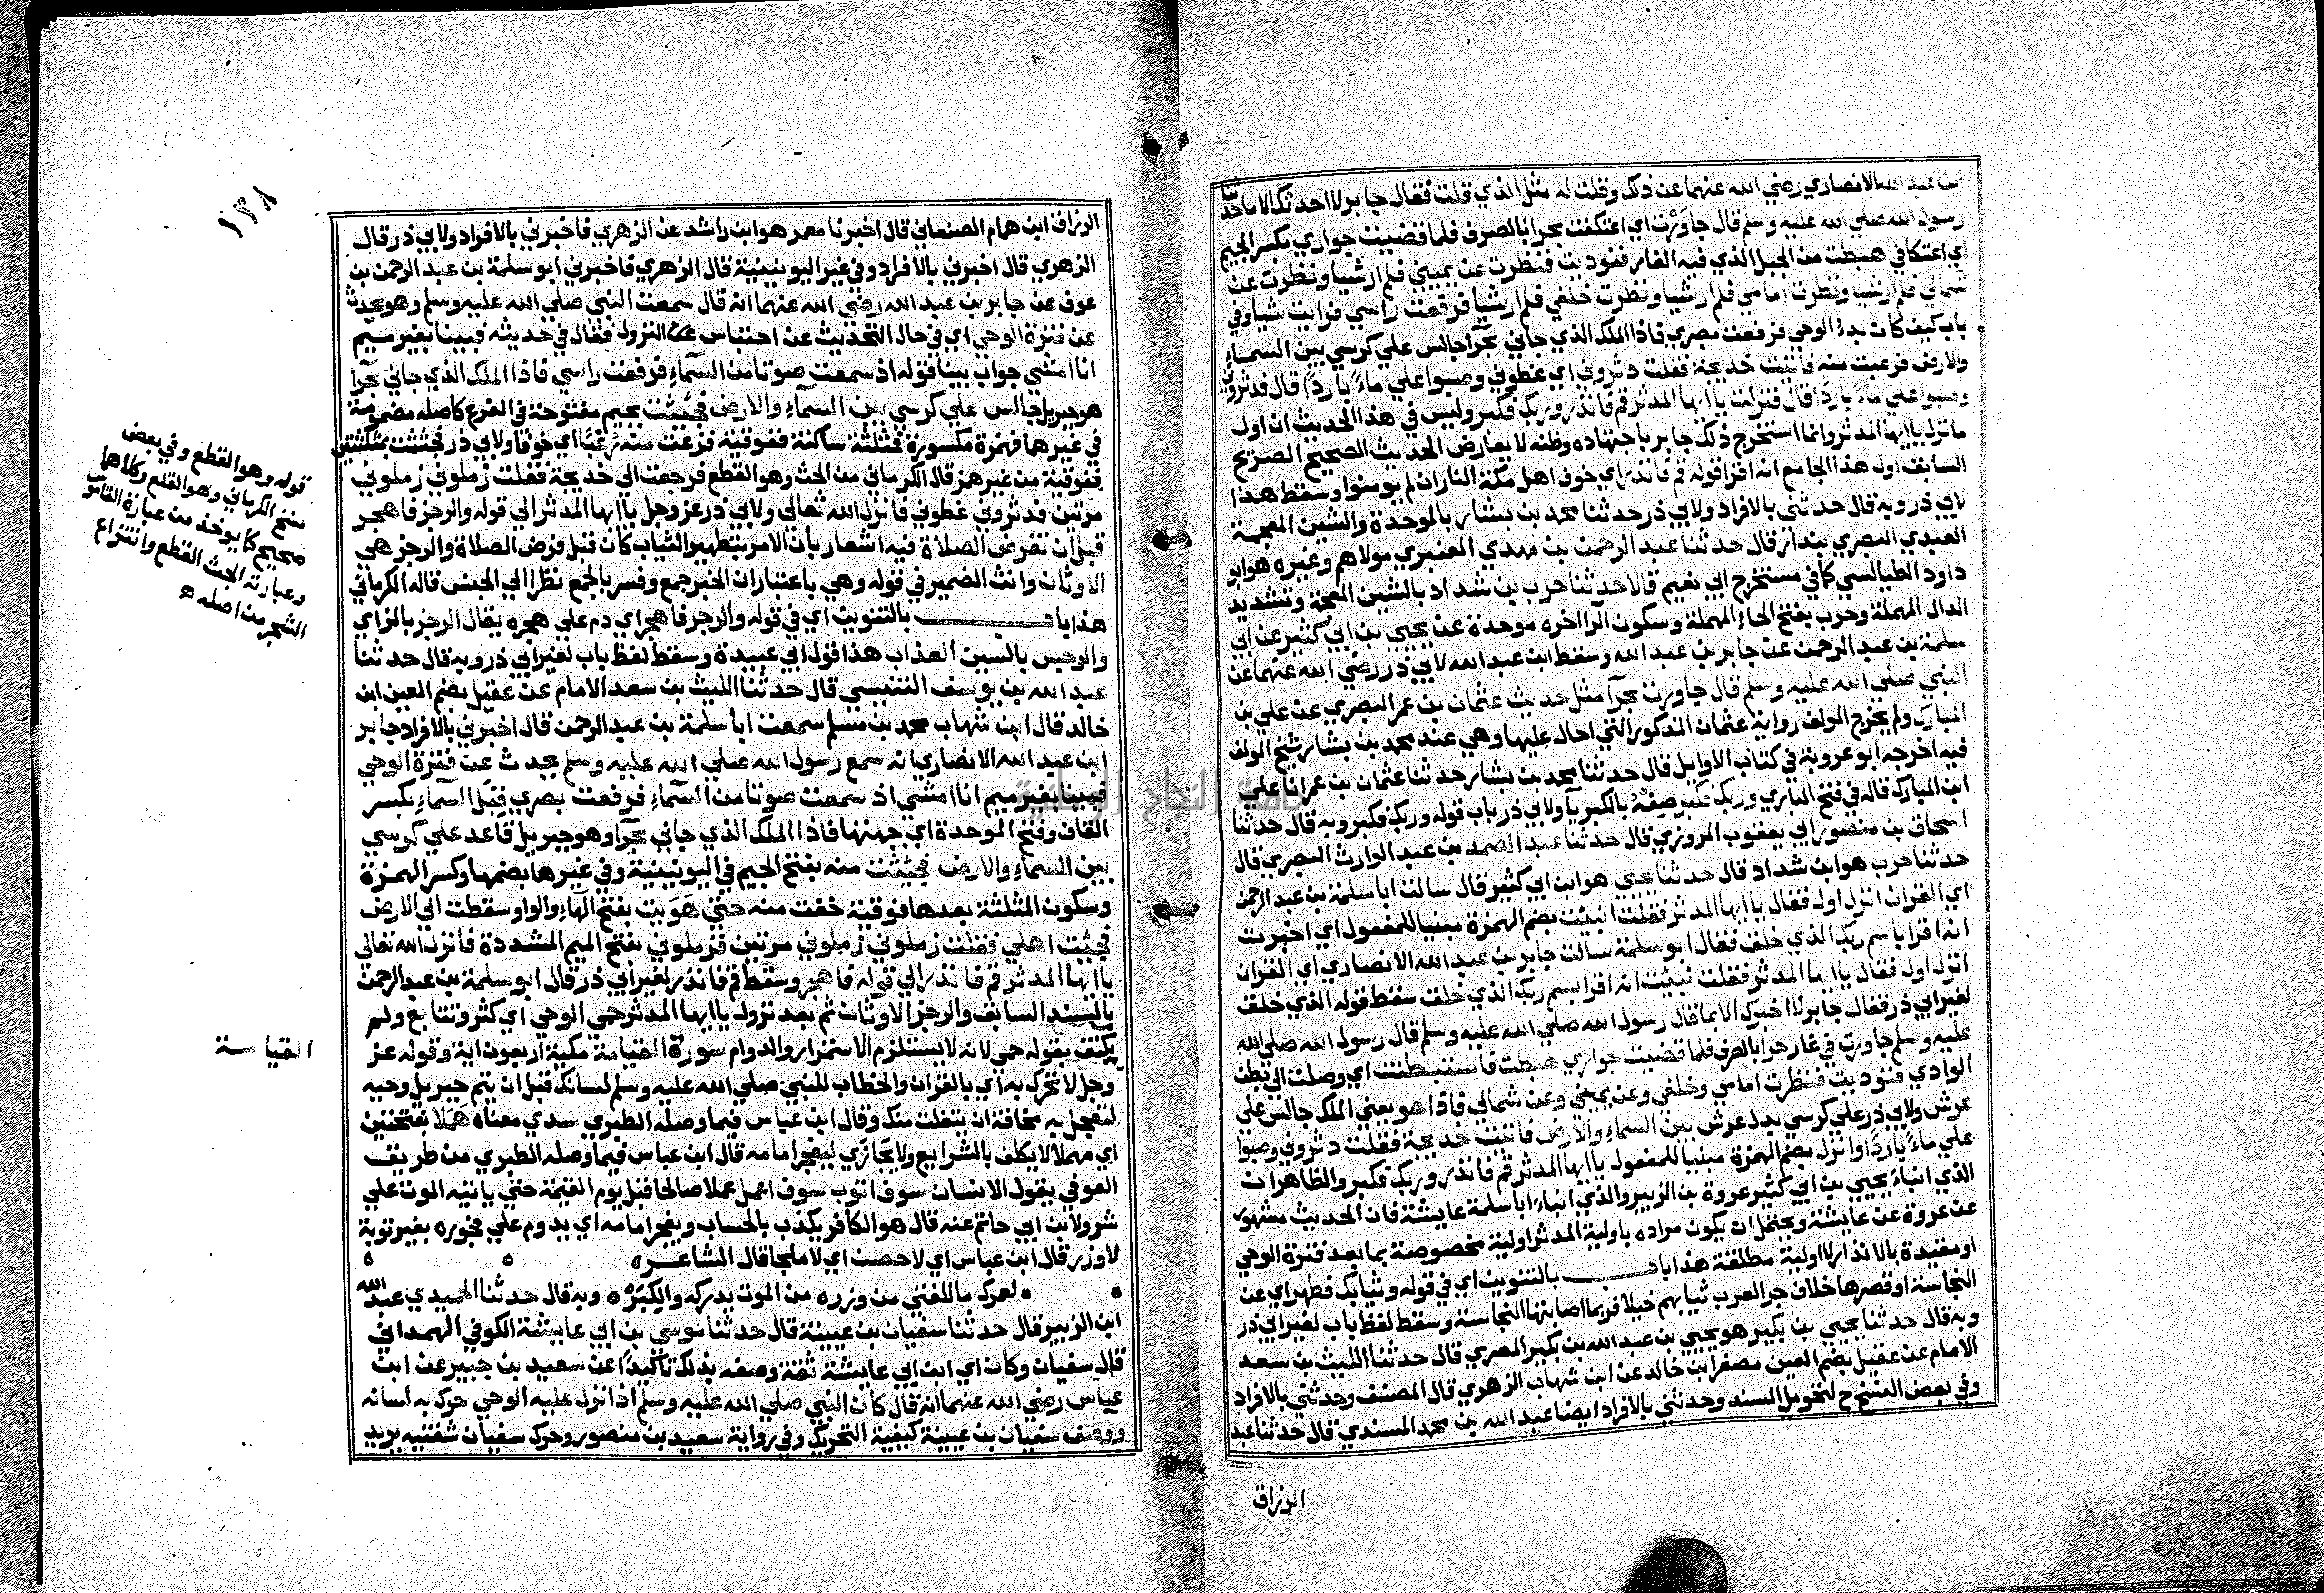 ابن عبد الله الانصاري رضي الله عنهما عن ذلك وقلت له مثل الذي قلت فقال جابر لا احدثك الا ما حدثنا
رسول الله صلي الله عليه وسلم قال جاورت اي اعتكفت بحرا بالصرف فلما قضيت جواري بكسر الجيم
اي اعتكافي هبطت من الجبل الذي فيه الغار فنوديت فنظرت عن يميني فلم ار شيا ونظرت عن
شمالي فلم ار شيا ونظرت امامي فلم ار شيا ونظرت خلفي فلم ار شيا فرفعت راسي فرايت شيا وفي
باب كيف كان بدء الوحي فرفعت بصري فاذا الملك الذي جاني بحرآ جالس علي كرسي بين السماء
والارض فرعبت منه فاتيت خديجة فقلت دثروني اي غطوني وصبوا علي ماءً باردًا قال فدثروني
وصبوا علي ماءً باردًا قال فنزلت يا ايها المدثر قم فانذر وربك فكبر وليس في هذا الحديث ان اول
ما نزل يا ايها المدثر وانما استخرج ذلك جابر باجتهاده وظنه لا يعارض الحديث الصحيح الصريح
السابق اول هذا الجامع انه اقرا قوله قم فانذر اي خوف اهل مكة النار ان لم يومنوا وسقط هذا
لابي ذر وبه قال حدثني بالافراد ولابي ذر حدثنا محمد بن بشار بالموحدة والشين المعجمة
العبدي البصري بندار قال حدثنا عبد الرحمن بن مهدي العنبري مولاهم وغيره هو ابو
داود الطيالسي كما في مستخرج ابي نعيم قالا حدثنا حرب بن شداد بالشين المعجمة وتشديد
الدال المهملة وحرب بفتح الحاء المهملة وسكون الرا اخره موحدة عن يحيي بن ابي كثير عن ابي
سلمة بن عبد الرحمن عن جابر بن عبد الله وسقط ابن عبد الله لابي ذر رضي الله عنهما عن
النبي صلي الله عليه وسلم قال جاورت بحرآ مثل حديث عثمان بن عمر البصري عن علي بن
المبارك ولم يخرج المولف رواية عثمان المذكور التي احال عليها وهي عند محمد بن بشار شيخ المولف
فيه اخرجه ابو عروبة في كتاب الاوايل قال حدثنا محمد بن بشار حدثنا عثمان بن عمر انا علي
ابن المبارك قاله في فتح الباري وربك فكبر صِفْهُ بالكبريآ ولابي ذر باب قوله وربك فكبر وبه قال حدثنا
اسحاق بن منصور ابي يعقوب المروزي قال حدثنا عبد الصمد بن عبد الوارث البصري قال
حدثنا حرب هو ابن شداد قال حدثنا يحيي هو ابن ابي كثير قال سالت ابا سلمة بن عبد الرحمن
اي القران انزل اول فقال يا ايها المدثر فقلت انبيت بضم الهمزة مبنيا للمفعول اي اخبرت
انه اقرا باسم ربك الذي خلق فقال ابو سلمة سالت جابر بن عبد الله الانصاري اي القران
انزل اول فقال يا ايها المدثر فقلت نبيت انه اقرا بسم ربك الذي خلق سقط قوله الذي خلق
لغير ابي ذر فقال جابر لا اخبرك الا بما قال رسول الله صلي الله عليه وسلم قال رسول الله صلي الله
عليه وسلم جاورت في غار حرا بالصرف فلما قضيت جواري هبطت فاستبطنت اي وصلت الي بطن
الوادي فنوديت فنظرت امامي وخلفي وعن يميني وعن شمالي فاذا هو يعني الملك جالس علي
عرش ولابي ذر علي كرسي بدل عرش بين السماء والارض فاتيت خديجة فقلت دثروني وصبوا
علي ماءً باردًا وانزل بضم الهمزة مبنيا للمفعول يا ايها المدثر قم فانذر وربك فكبر والظاهر ان
الذي انباء يحيي بن ابي كثير عروة بن الزبير والذي انباء ابا سلمة عايشة فان الحديث مشهور
عن عروة عن عايشة ويحتمل ان يكون مراده باولية المدثر اولية مخصوصة بما بعد فترة الوحي
او مقيدة بالانذار لا اولية مطلقة هذا باب بالتنوين اي في قوله وثيابك فطهر اي عن
النجاسة او قصرها خلاف جر العرب ثيابهم خيلا فربما اصابتها النجاسة وسقط لفظ باب لغير ابي ذر
وبه قال حدثنا يحيي بن بكير هو يحيي بن عبد الله بن بكير المصري قال حدثنا الليث بن سعد
الامام عن عقيل بضم العين مصغرا ابن خالد عن ابن شهاب الزهري قال المصنف وحدثني بالافراد
وفي بعض النسخ ح لتحويل السند وحدثني بالافراد ايضا عبد الله بن محمد المسندي قال حدثنا عبد
الرزاق
١٣٨
الرزاق ابن همام الصنعاني قال اخبرنا معمر هو ابن راشد عن الزهري فاخبرني بالافراد ولابي ذر قال
الزهري قال اخبرني بالافراد وفي غير اليونينية قال الزهري فاخبرني ابو سلمة بن عبد الرحمن بن
عوف عن جابر بن عبد الله رضي الله عنهما انه قال سمعت النبي صلي الله عليه وسلم وهو يحدث
عن فترة الوحي اي في حال التحديث عن احتباس عن النزول فقال في حديثه فبينا بغير ميم
انا امشي جواب بينا قوله اذ سمعت صوتا من السماء فرفعت راسي فاذا الملك الذي جاني بحرآ
هو جبريل جالس علي كرسي بين السماء والارض فجئثت بجيم مفتوحة في الفرع كاصله مضمومة
في غيرهما فهمزة مكسورة فمثلثة ساكنة ففوقية فزعت منه رُعْبًا اي خوفا ولابي ذر فجثثت بمثلثتين
ففوقية من غير همز قال الكرماني من الجث وهو القطع فرجعت الي خديجة فقلت زملوني زملوني
مرتين فدثروني غطوني فانزل الله تعالي ولابي ذر عز وجل يا ايها المدثر الي قوله والرجز فاهجر
قبل ان تفرض الصلاة فيه اشعار بان الامر بتطهير الثياب كان قبل فرض الصلاة والرجز هي
الاوثان وانث الضمير في قوله وهي باعتبار ان الخبر جمع وفسر بالجمع نظرا الي الجنس قاله الكرماني
هذا باب بالتنوين اي في قوله والرجز فاهجر اي دم علي هجره يقال الرجز بالزاي
والرجس بالسين العذاب هذا قول ابي عبيدة وسقط لفظ باب لغير ابي ذر وبه قال حدثنا
عبد الله بن يوسف التنيسي قال حدثنا الليث بن سعد الامام عن عقيل بضم العين ابن
خالد قال ابن شهاب محمد بن مسلم سمعت ابا سلمة بن عبد الرحمن قال اخبرني بالافراد جابر
ابن عبد الله الانصاري انه سمع رسول الله صلي الله عليه وسلم يحدث عن فترة الوحي
فبينا بغير ميم انا امشي اذ سمعت صوتا من السمآء فرفعت بصري قِبَل السمآء بكسر
القاف وفتح الموحدة اي جهتها فاذا الملك الذي جاني بحرآ وهو جبريل قاعد علي كرسي
بين السماء والارض فجئثت منه بفتح الجيم في اليونينية وفي غيرها بضمها وكسر الهمزة
وسكون المثلثة بعدها فوقية خفت منه حتي هَوَيت بفتح الهاء والواو سقطت الي الارض
فجئت اهلي فقلت زملوني زملوني مرتين فزملوني بفتح الميم المشددة فانزل الله تعالي
يا ايها المدثر قم فانذر الي قوله فاهجر وسقط قم فانذر لغير ابي ذر قال ابو سلمة بن عبد الرحمن
بالسند السابق والرجز الاوثان ثم بعد نزول يا ايها المدثر حمي الوحي اي كثر وتتابع ولم
يكتف بقوله حمي لانه لا يستلزم الاستمرار والدوام سورة القيامة مكية اربعون اية وقوله عز
وجل لا تحرك به اي بالقران والخطاب للنبي صلي الله عليه وسلم لسانك قبل ان يتم جبريل وحيه
لتعجل به مخافة ان يتفلت منك وقال ابن عباس فيما وصله الطبري سدي معناه هَمَلا بفتحتين
اي مهملا لا يكلف بالشرايع ولا يجازي ليفجر امامه قال ابن عباس فيما وصله الطبري من طريق
العوفي يقول الانسان سوف اتوب سوف اعمل عملا صالحا قبل يوم القيمة حتي ياتيه الموت علي
شر ولابن ابي حاتم عنه قال هو الكافر يكذب بالحساب ويفجر امامه اي يدوم علي فجوره بغير توبة
لا وزر قال ابن عباس اي لا حصن اي لا ملجا قال الشاعر
لعمرك ما للفتي من وزر ه من الموت يدركه والكبر ه وبه قال حدثنا الحميدي عبد الله
ابن الزبير قال حدثنا سفيان بن عيينة قال حدثنا موسي بن ابي عايشة الكوفي الهمداني
قال سفيان وكان اي ابن ابي عايشة ثقة وصفه بذلك تاكيدًا عن سعيد بن جبير عن ابن
عباس رضي الله عنهما انه قال كان النبي صلي الله عليه وسلم اذا نزل عليه الوحي حرك به لسانه
ووصف سفيان بن عيينة كيفية التحريك وفي رواية سعيد بن منصور وحرك سفيان شفتيه يريد
قوله وهو القطع وفي بعض
نسخ الكرماني وهو القلع وكلاهما
صحيح كما يوخذ من عبارة القاموس
وعبارته الجث القطع وانتزاع
الشجر من اصله
القيامة